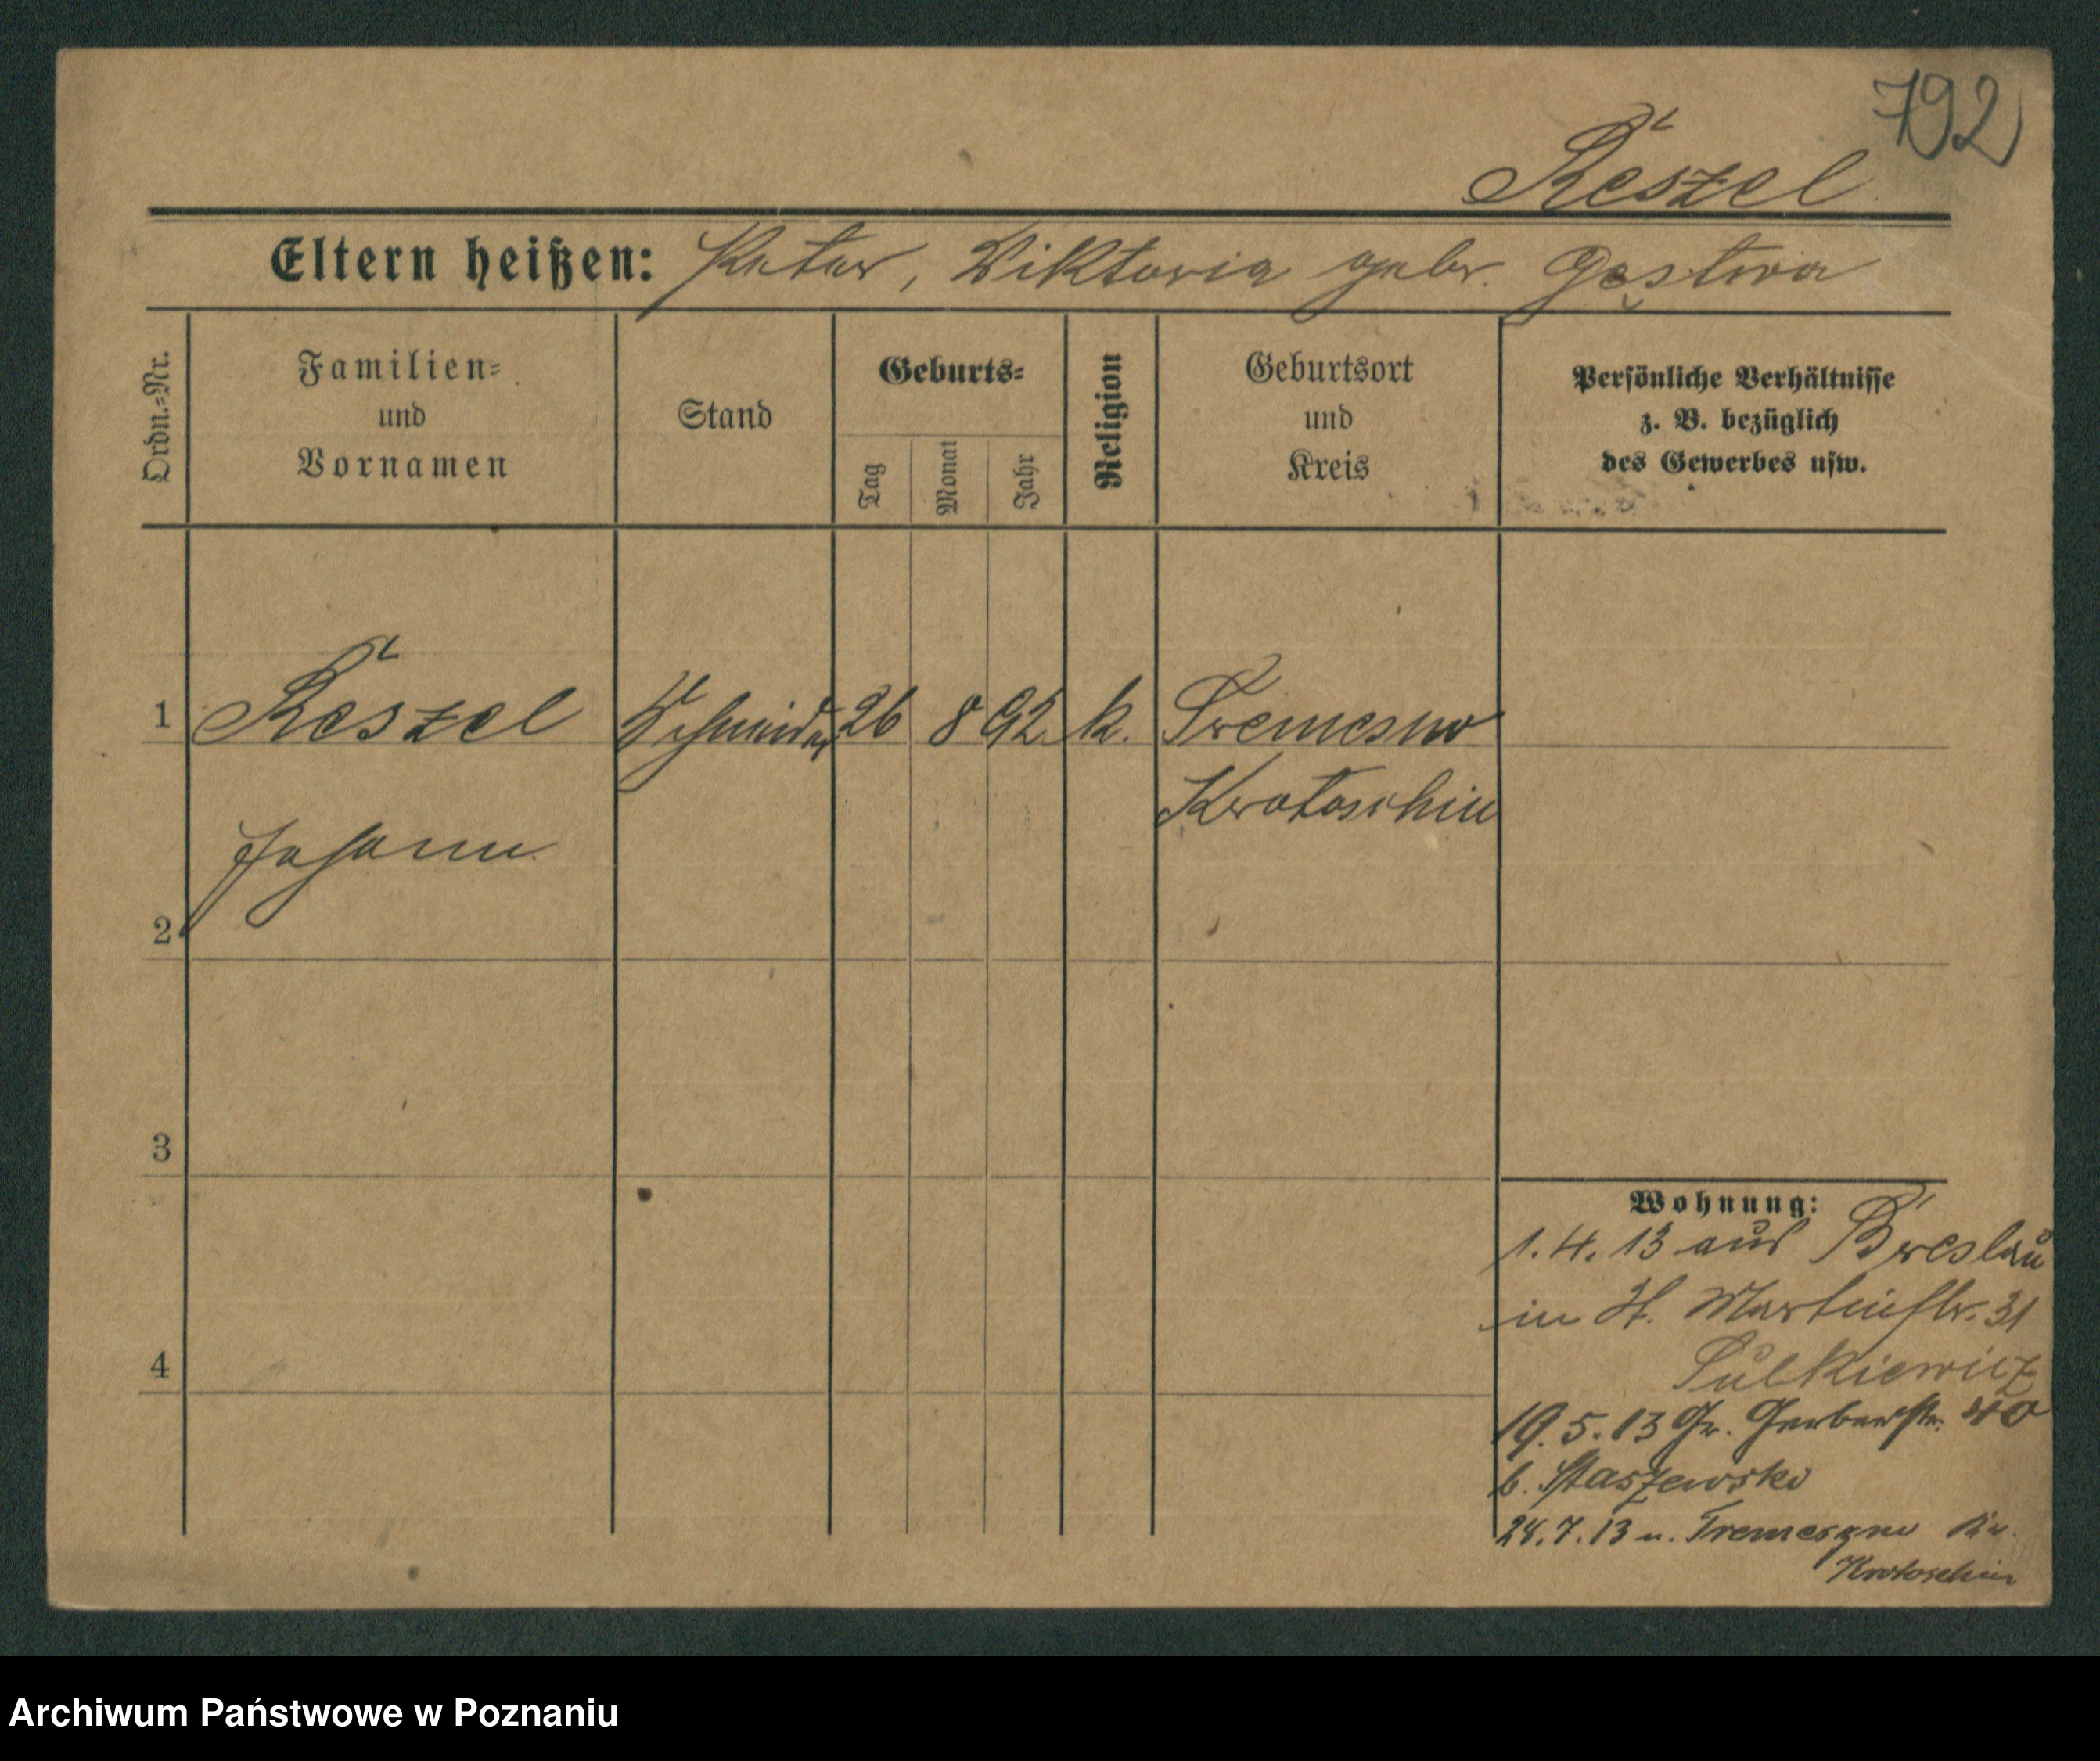 792
Reszel
Eltern heißen: Peter, Viktoria gebr. Gęstwa
Ordn.=Nr.
Familien=
und
Vornamen
Stand
Geburts=
Tag
Monat
Jahr
Religion
Geburtsort
und
Kreis
Persönliche Verhältnisse
z. B. bezüglich
des Gewerbes usw.
1 Reszel Schneider 26 8 92 k. Tremesno
Krotoschin
Johann
2
3
4
Wohnung:
1.4.13 aus Breslau
in St. Martinstr. 31
19.5.13 Gr. Gerberstr. 40
b. Staszewski
24.7.13 n. Tremeszno Kr.
Krotoschin
Archiwum Państwowe w Poznaniu